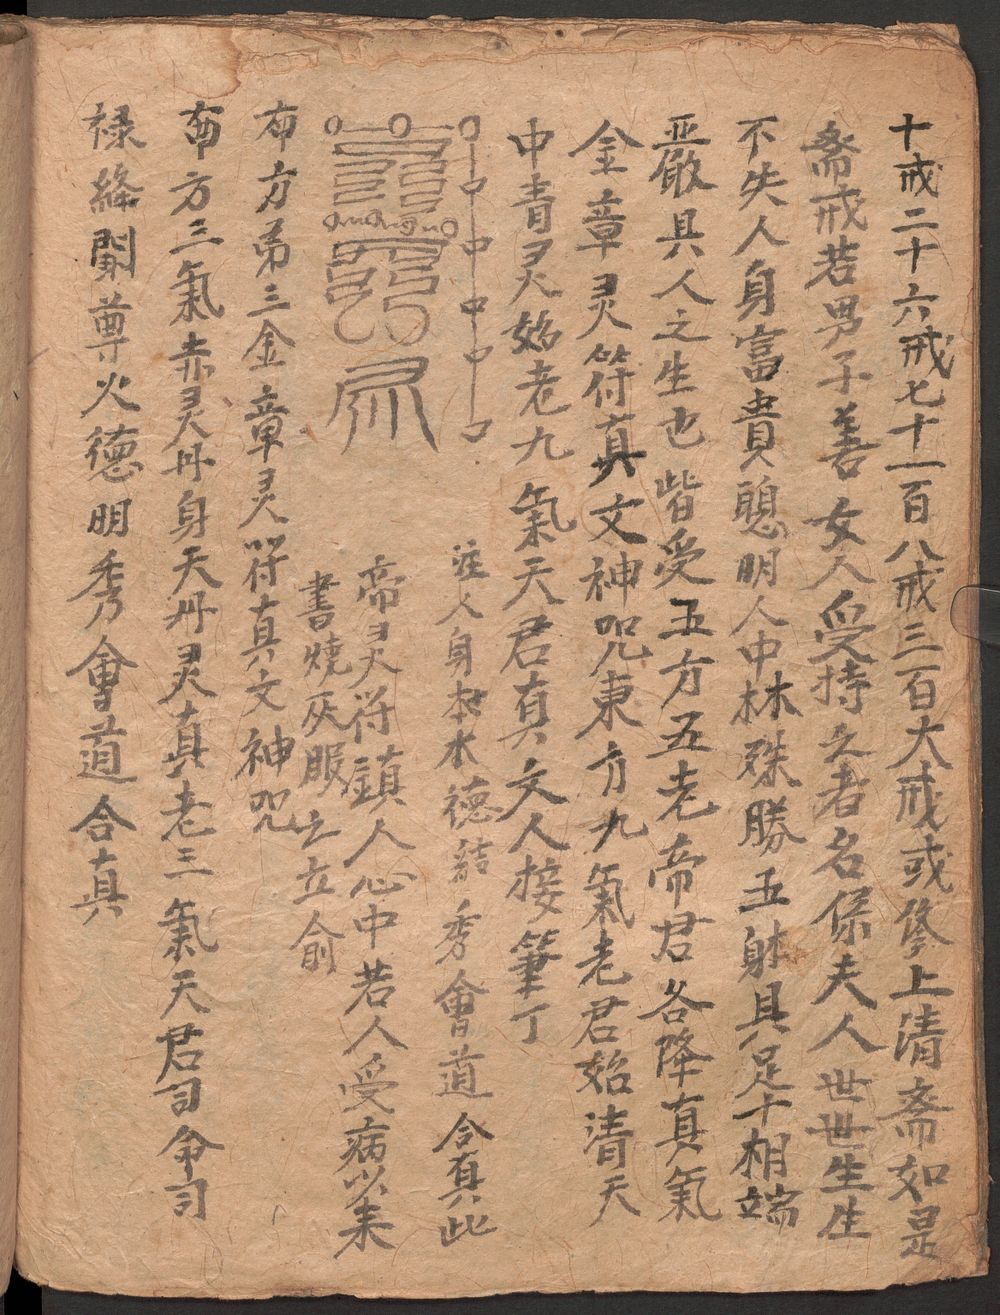 十戒二十六戒七十一百八戒三百大戒或修上清斋如是
斋戒若男子善女人受持之者名係夫人世世生生
不失人身富貴聰明人中林殊勝五躰具足十相端
嚴具人之生也皆受五方五老帝君各降真氣
金章灵符真文神咒東方九氣老君始清天
中青灵始老九氣天君真文人接筆丁
注人身本木德結秀會道合真此
帝灵符鎮人心中若人受病以朱
書燒灰服之立俞
布方弟三金章灵符真文神咒
布方三氣赤灵丹身天丹灵真老三氣天君司命司
禄絳闌尊火德明秀會道合真